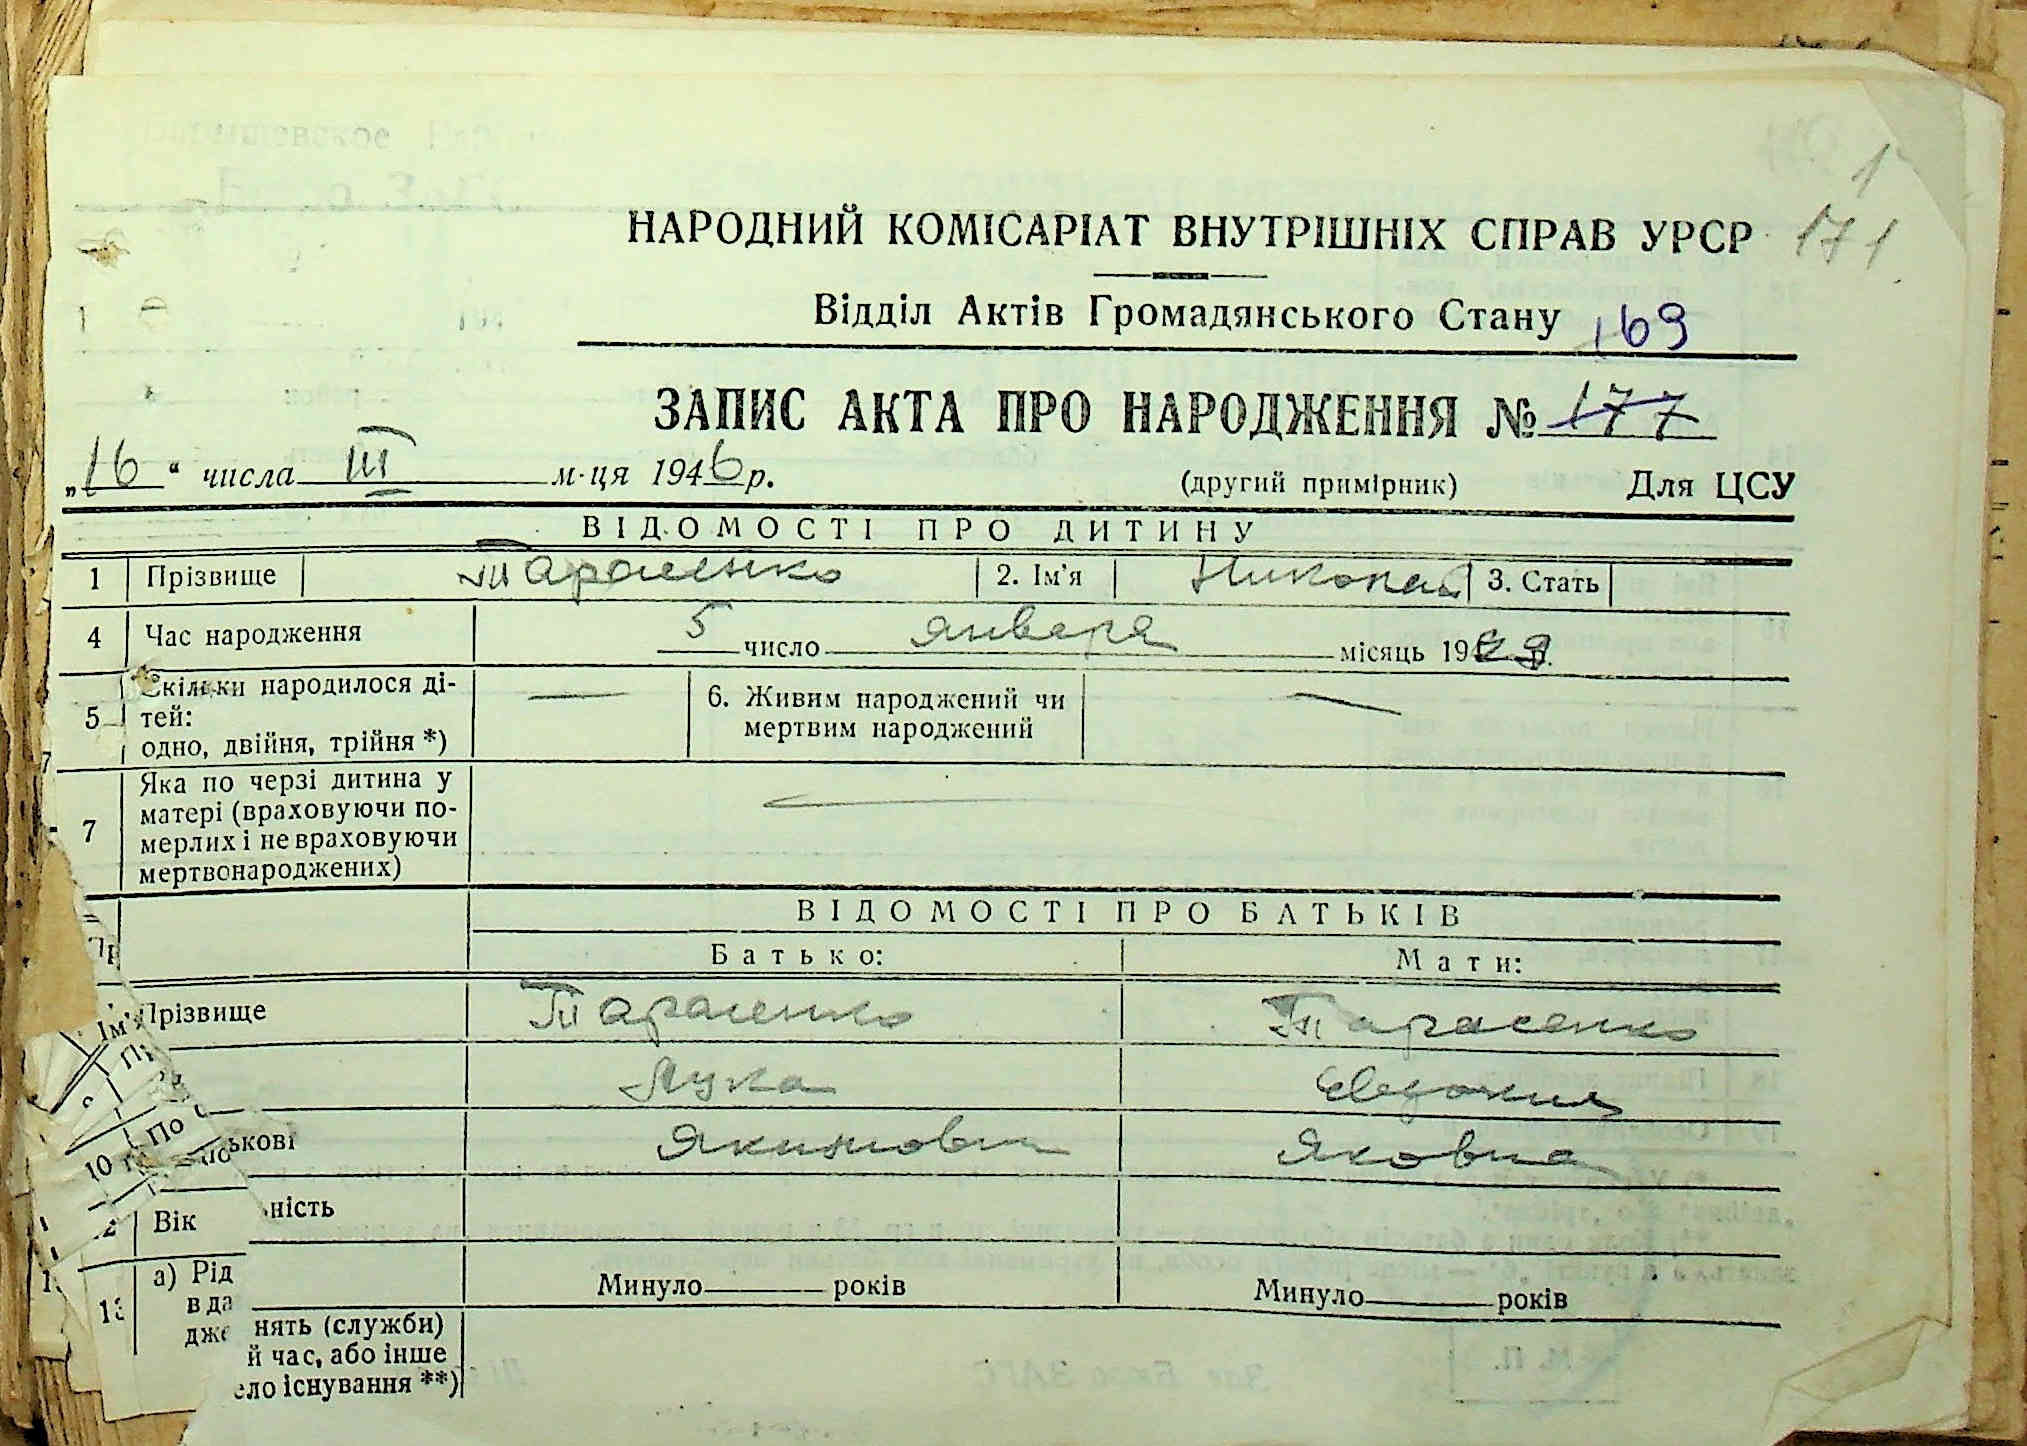 1
171
НАРОДНИЙ КОМІСАРІАТ ВНУТРІШНІХ СПРАВ УРСР
Відділ Актів Громадянського Стану 169
ЗАПИС АКТА ПРО НАРОДЖЕННЯ № 177
„16“ числа III м-ця 1946 р. (другий примірник) Для ЦСУ
ВІДОМОСТІ ПРО ДИТИНУ
1 Прізвище Тарасенко 2. Ім'я Николай 3. Стать
4 Час народження 5 число января місяць 19 р.
5 Скільки народилося ді-
тей:
одно, двійня, трійня *)
6. Живим народжений чи
мертвим народжений
7 Яка по черзі дитина у
матері (враховуючи по-
мерлих і не враховуючи
мертвонароджених)
ВІДОМОСТІ ПРО БАТЬКІВ
Батько: Мати:
Прізвище Тарасенко Тарасенко
Ім'я
Лука Евдокия
10 По
ькові Якимович Яковна
ність
Вік
Минуло років Минуло років
13 а) Рід
в да
дже
нять (служби)
й час, або інше
ело існування **)